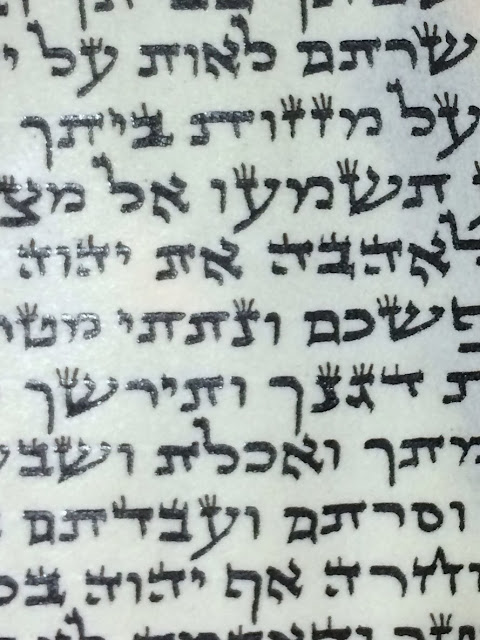 שרתם לאות על י
על מזזות ביתך
תשמעו אל מצ
לאהבה את יהוה
פשכם ונתתי מט
ת דגנך ותירשך
מתך ואכלת ושבע
וסרתם ועבדתם
וחרה אף יהוה בכ